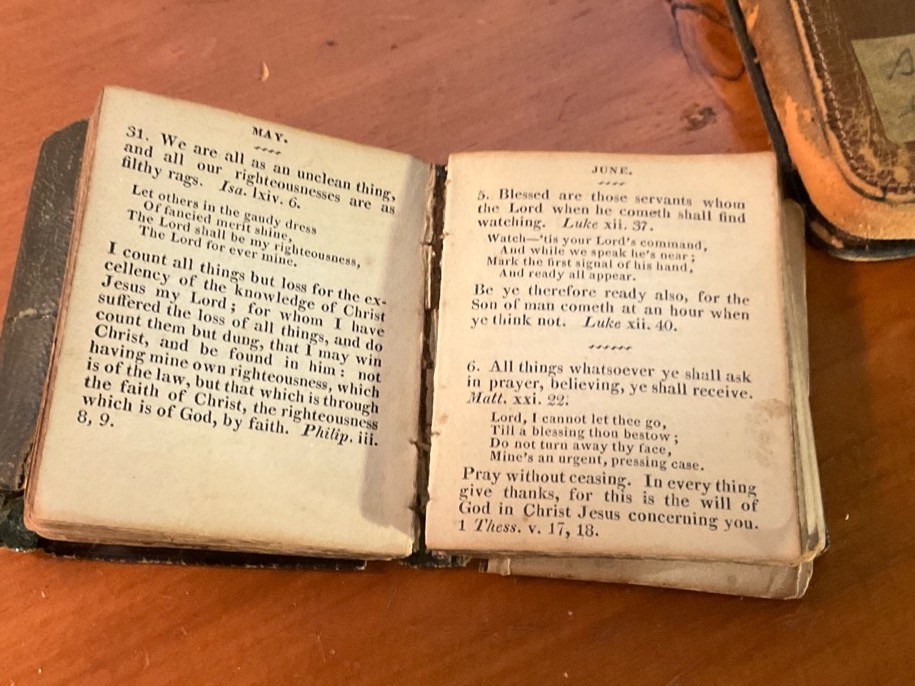 MAY.
31. We are all as an unclean thing,
and all our righteousnesses are as
filthy rags. Isa. lxiv. 6.
Let others in the gaudy dress
Of fancied merit shine,
The Lord shall be my righteousness,
The Lord for ever mine.
I count all things but loss for the ex-
cellency of the knowledge of Christ
Jesus my Lord; for whom I have
suffered the loss of all things, and do
count them but dung, that I may win
Christ, and be found in him: not
having mine own righteousness, which
is of the law, but that which is through
the faith of Christ, the righteousness
which is of God, by faith. Philip. iii.
8, 9.
JUNE.
5. Blessed are those servants whom
the Lord when he cometh shall find
watching. Luke xii. 37.
Watch—'tis your Lord's command,
And while we speak he's near;
Mark the first signal of his hand,
And ready all appear.
Be ye therefore ready also, for the
Son of man cometh at an hour when
ye think not. Luke xii. 40.
6. All things whatsoever ye shall ask
in prayer, believing, ye shall receive.
Matt. xxi. 22.
Lord, I cannot let thee go,
Till a blessing thou bestow;
Do not turn away thy face,
Mine's an urgent, pressing case.
Pray without ceasing. In every thing
give thanks, for this is the will of
God in Christ Jesus concerning you.
1 Thess. v. 17, 18.